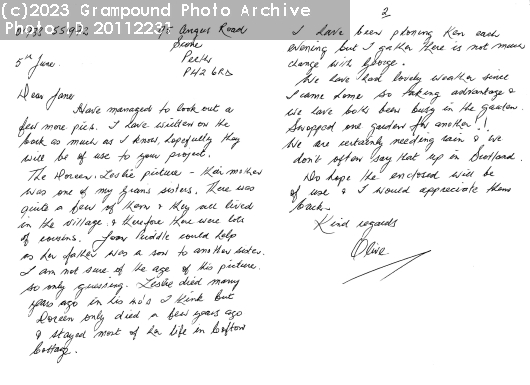 (c)2023 Grampound Photo Archive
Photo ID: 20112231
Angus Road
Scone
Perths
PH2 6RD
5th June.
Dear Jane
Have managed to look out a
few more pics. I have written on the
back as much as I know, hopefully they
will be of use to your project.
The Doreen, Leslie picture - their mother
was one of my grans sisters. There was
quite a few of them & they all lived
in the village & therefore there were lots
of cousins. Joan Puddle could help
as her father was a son to another sister.
I am not sure of the age of this picture.
so only guessing. Leslie died many
years ago in his I think but
Doreen only died a few years ago
& stayed most of her life in
Cottage.
2
I have been phoning Ken each
evening but I gather there is not much
change with George.
We have had lovely weather since
I came home so taking advantage &
we have both been busy in the garden.
Swopped one garden for another!!
We are certainly needing rain & we
don't often say that up in Scotland.
Do hope the enclosed will be
of use & I would appreciate them
back.
Kind regards
Olive